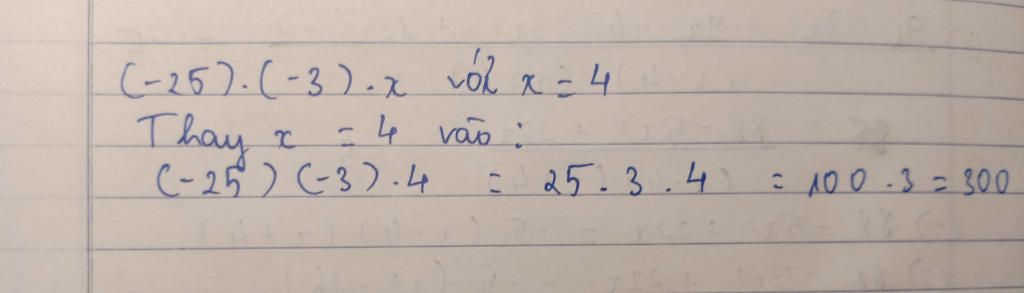 (-25).(-3).x với x = 4
Thay x = 4 vào:
(-25)(-3).4 = 25.3.4 = 100.3 = 300